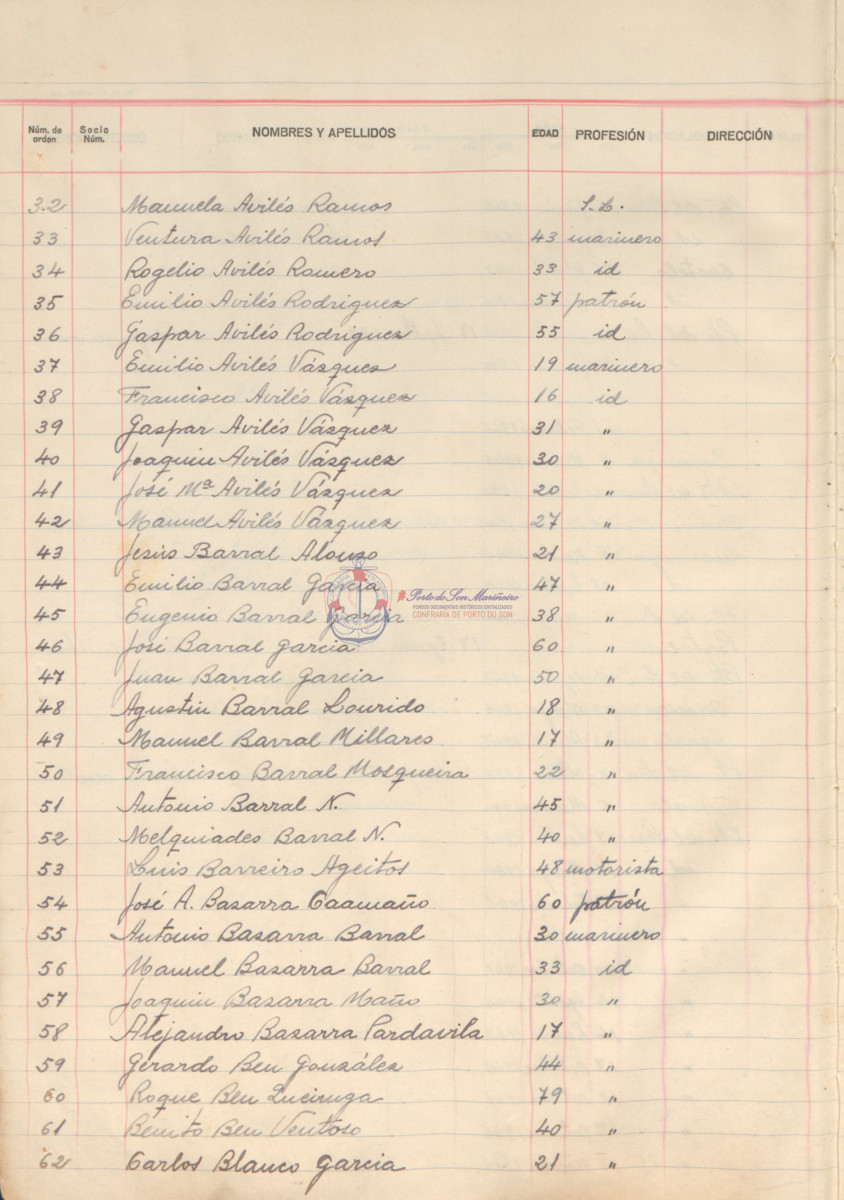 Núm. de orden Socio Núm. NOMBRES Y APELLIDOS EDAD PROFESIÓN DIRECCIÓN
32 Manuela Avilés Ramos S.L.
33 Ventura Avilés Ramos 43 marinero
34 Rogelio Avilés Romero 33 id
35 Emilio Avilés Rodriguez 57 patrón
36 Gaspar Avilés Rodriguez 55 id
37 Emilio Avilés Vázquez 19 marinero
38 Francisco Avilés Vázquez 16 id
39 Gaspar Avilés Vázquez 31 "
40 Joaquin Avilés Vázquez 30 "
41 José Mª Avilés Vázquez 20 "
42 Manuel Avilés Vázquez 27 "
43 Jesús Barral Alonso 21 "
44 Emilio Barral Garcia 47 "
#Porto do Son Mariñeiro
FONDOS DOCUMENTAIS HISTÓRICOS DIXITALIZADOS
CONFRARÍA DE PORTO DO SON
45 Eugenio Barral Garcia 38 "
46 José Barral Garcia 60 "
47 Juan Barral Garcia 50 "
48 Agustin Barral Lourido 18 "
49 Manuel Barral Millares 17 "
50 Francisco Barral Mosqueira 22 "
51 Antonio Barral N. 45 "
52 Melquiades Barral N. 40 "
53 Luis Barreiro Ageitos 48 motorista
54 José A. Basarra Caamaño 60 patrón
55 Antonio Basarra Barral 30 marinero
56 Manuel Basarra Barral 33 id
57 Joaquin Basarra Maño 30 "
58 Alejandro Basarra Pardavila 17 "
59 Gerardo Ben González 44 "
60 Roque Ben Queiruga 79 "
61 Benito Ben Ventoso 40 "
62 Carlos Blanco Garcia 21 "